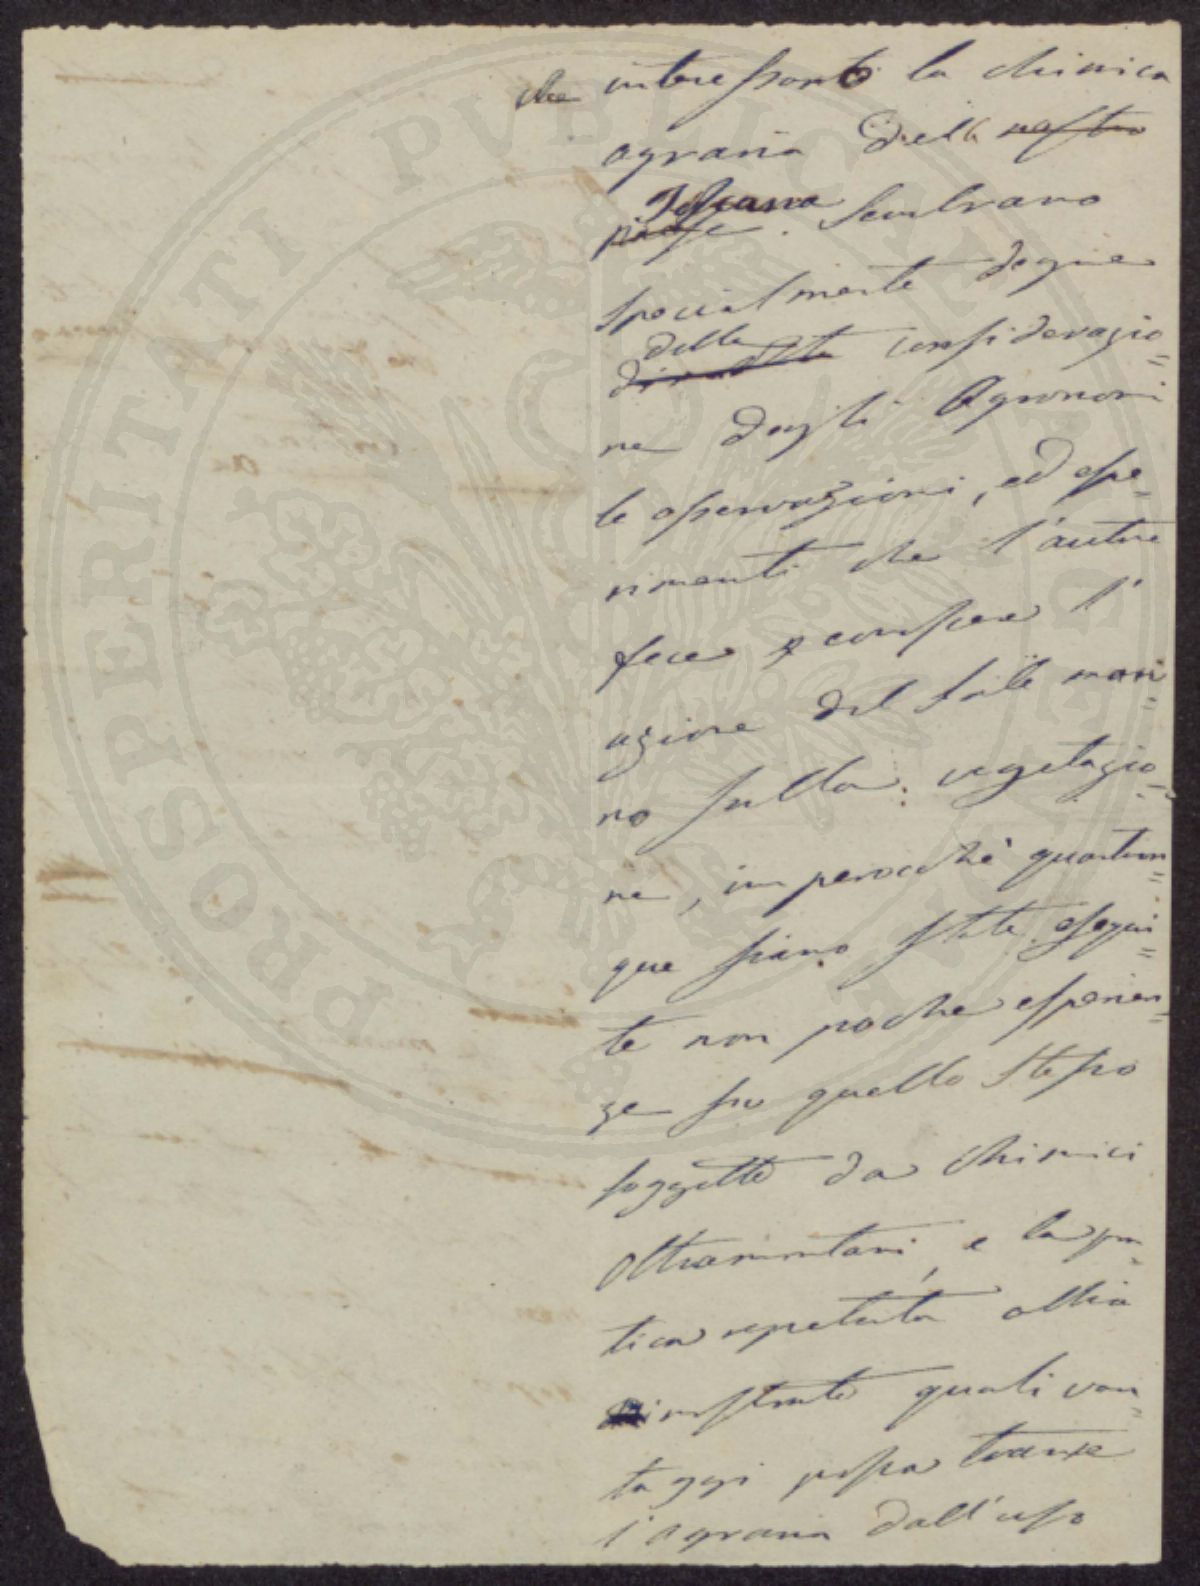 che interessano la chimica
agraria della nostro
Toscana
paese. sembrano
specialmente degne
della
di molta considerazio=
ne degli Agronomi
le osservazioni, ed espe=
rimenti che l'autore
fece e conoscere l'
azione del sale mari=
no sulla vegetazio=
ne, imperocchè quantun=
que siano state esegui=
te non poche esperien=
ze su quello stesso
soggetto da chimici
oltramontani, e la pra=
tica repetuta abbia
dimostrato quali van=
taggi possa trarre
l'agraria dall'uso
PROSPERITATI PVBLICAE AVGENDAE